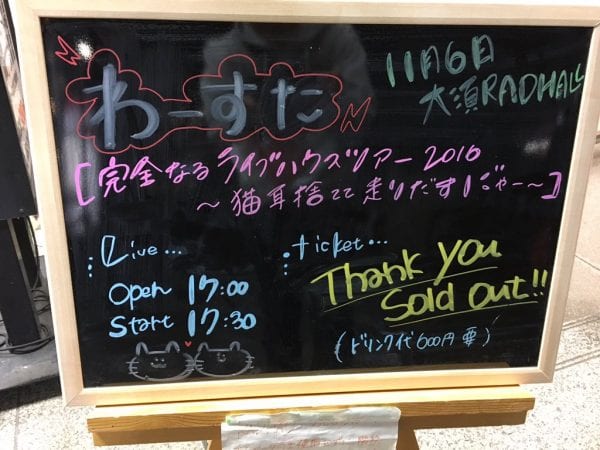 わーすた
11月6日
大須RADHALL
[完全なるライブハウスツアー2016
～猫耳捨てて走りだすにゃー～]
Live...
Open 17:00
Start 17:30
ticket...
Thank you
Sold out!!
(ドリンク代600円要)